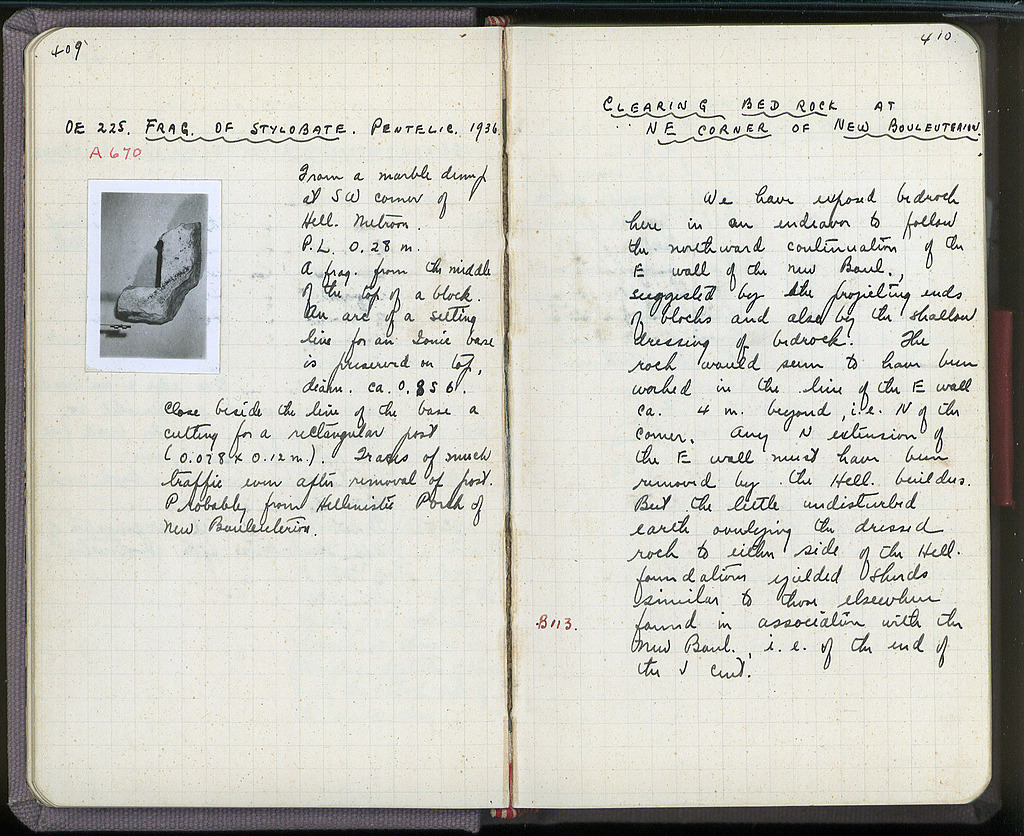 409
OE 225. FRAG. OF STYLOBATE. PENTELIC. 1936.
A 670
From a marble dump
at SW corner of
Hell. Metroon.
P.L. 0.28 m.
A frag. from the middle
of the top of a block.
An arc of a setting
line for an Ionic base
is preserved on top,
diam. ca. 0.856.
Close beside the line of the base a
cutting for a rectangular post
(0.078 x 0.12 m.). Traces of much
traffic even after removal of post.
Probably from Hellenistic Porch of
New Bouleuterion.
410
CLEARING BED ROCK AT
NE CORNER OF NEW BOULEUTERION.
We have exposed bedrock
here in an endeavor to follow
the northward continuation of the
E wall of the New Boul.,
suggested by the projecting ends
of blocks and also by the shallow
dressing of bedrock. The
rock would seem to have been
worked in the line of the E wall
ca. 4 m. beyond, i.e. N of the
corner. Any N extension of
the E wall must have been
removed by the Hell. builders.
But the little undisturbed
earth overlying the dressed
rock to either side of the Hell.
foundations yielded sherds
similar to those elsewhere
B 113.
found in association with the
New Boul., i.e. of the end of
the V cent.